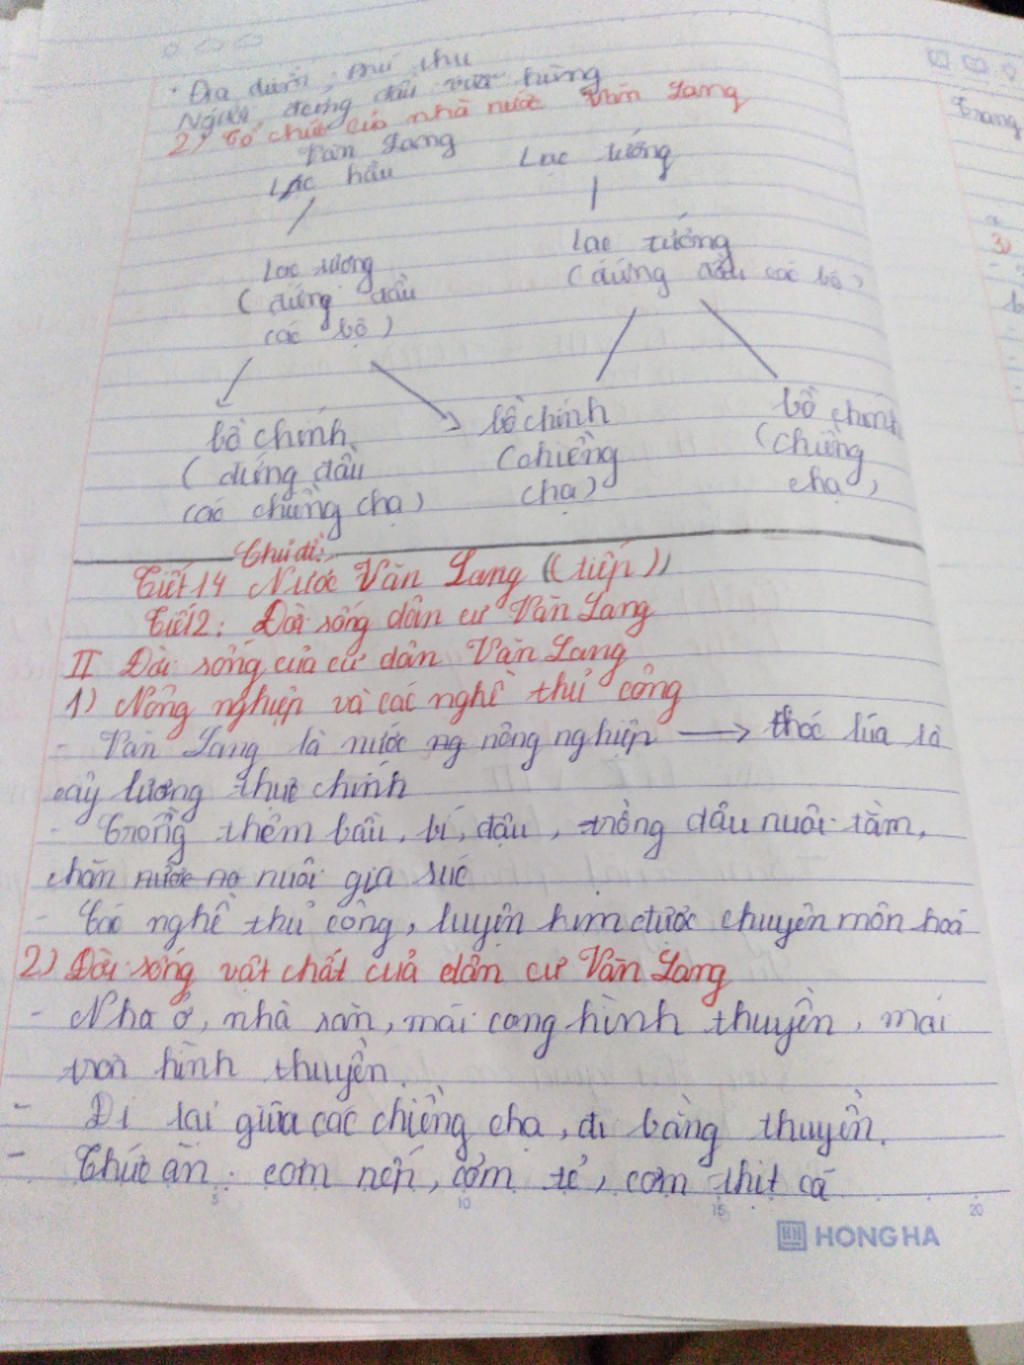 Địa điểm, phú thọ
Người đứng đầu vua hùng
2) Tổ chức của nhà nước Văn Lang
Văn Lang
Lạc hầu Lạc tướng
Lạc tướng (đứng đầu các bộ)
Lạc tướng (đứng đầu các bộ)
bồ chính (đứng đầu các chiềng chạ)
bồ chính (chiềng chạ)
bồ chính (chiềng chạ)
Chủ đề:
Tiết 14 Nước Văn Lang (tiếp)
Tiết 2: Đời sống dân cư Văn Lang
II Đời sống của cư dân Văn Lang
1) Nông nghiệp và các nghề thủ công
- Văn Lang là nước ng nông nghiệp → thóc lúa là
cây lương thực chính
- Trồng thêm bầu, bí, đậu, trồng dâu nuôi tằm,
chăn nuôi gia súc
- Các nghề thủ công, luyện kim được chuyên môn hoá
2) Đời sống vật chất của dân cư Văn Lang
- Nhà ở, nhà sàn, mái cong hình thuyền, mái
tròn hình thuyền.
- Đi lại giữa các chiềng chạ, đi bằng thuyền.
- Thức ăn: cơm nếp, cơm tẻ, cơm thịt cá
5 10 15 20
HH HONG HA
Trang
3)